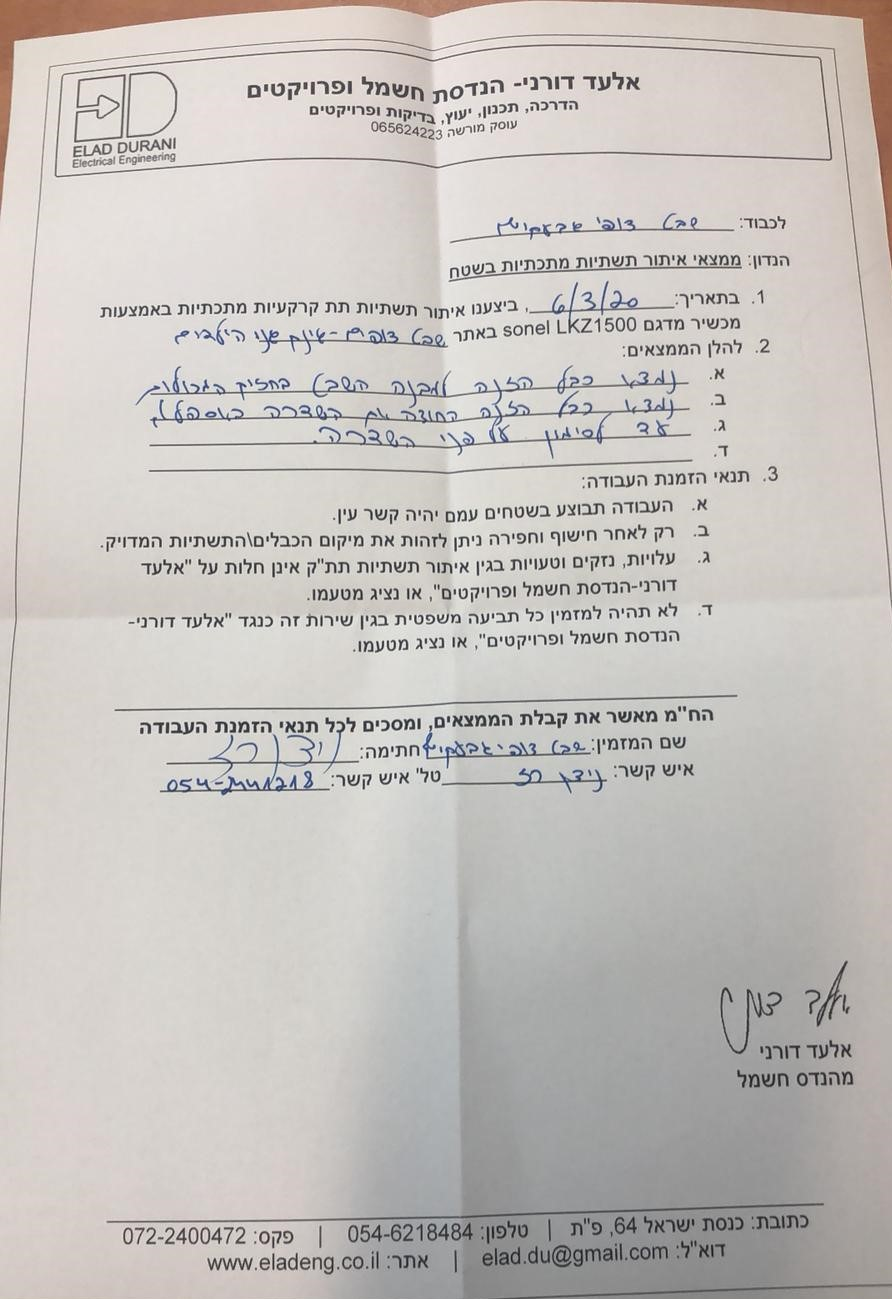 אלעד דורני- הנדסת חשמל ופרויקטים
הדרכה, תכנון, יעוץ, בדיקות ופרויקטים
עוסק מורשה 065624223
ELAD DURANI
Electrical Engineering
לכבוד: שבט צופי
הנדון: ממצאי איתור תשתיות מתכתיות בשטח
1. בתאריך: 6/3/20, ביצענו איתור תשתיות תת קרקעיות מתכתיות באמצעות
מכשיר מדגם sonel LKZ1500 באתר שבט צופים -
2. להלן הממצאים:
א. נמצא כבל הזנה למבנה השבט בחזית
ב. נמצא כבל הזנה החוצה את השדרה
ג. עד לסימון על פני השדרה.
ד.
3. תנאי הזמנת העבודה:
א. העבודה תבוצע בשטחים עמם יהיה קשר עין.
ב. רק לאחר חישוף וחפירה ניתן לזהות את מיקום הכבלים\התשתיות המדויק.
ג. עלויות, נזקים וטעויות בגין איתור תשתיות תת"ק אינן חלות על "אלעד
דורני-הנדסת חשמל ופרויקטים", או נציג מטעמו.
ד. לא תהיה למזמין כל תביעה משפטית בגין שירות זה כנגד "אלעד דורני-
הנדסת חשמל ופרויקטים", או נציג מטעמו.
הח"מ מאשר את קבלת הממצאים, ומסכים לכל תנאי הזמנת העבודה
שם המזמין: שבט צופי חתימה:
איש קשר: ניצן רז טל' איש קשר: 054-
אלעד דורני
מהנדס חשמל
כתובת: כנסת ישראל 64, פ"ת | טלפון: 054-6218484 | פקס: 072-2400472
דוא"ל: elad.du@gmail.com | אתר: www.eladeng.co.il